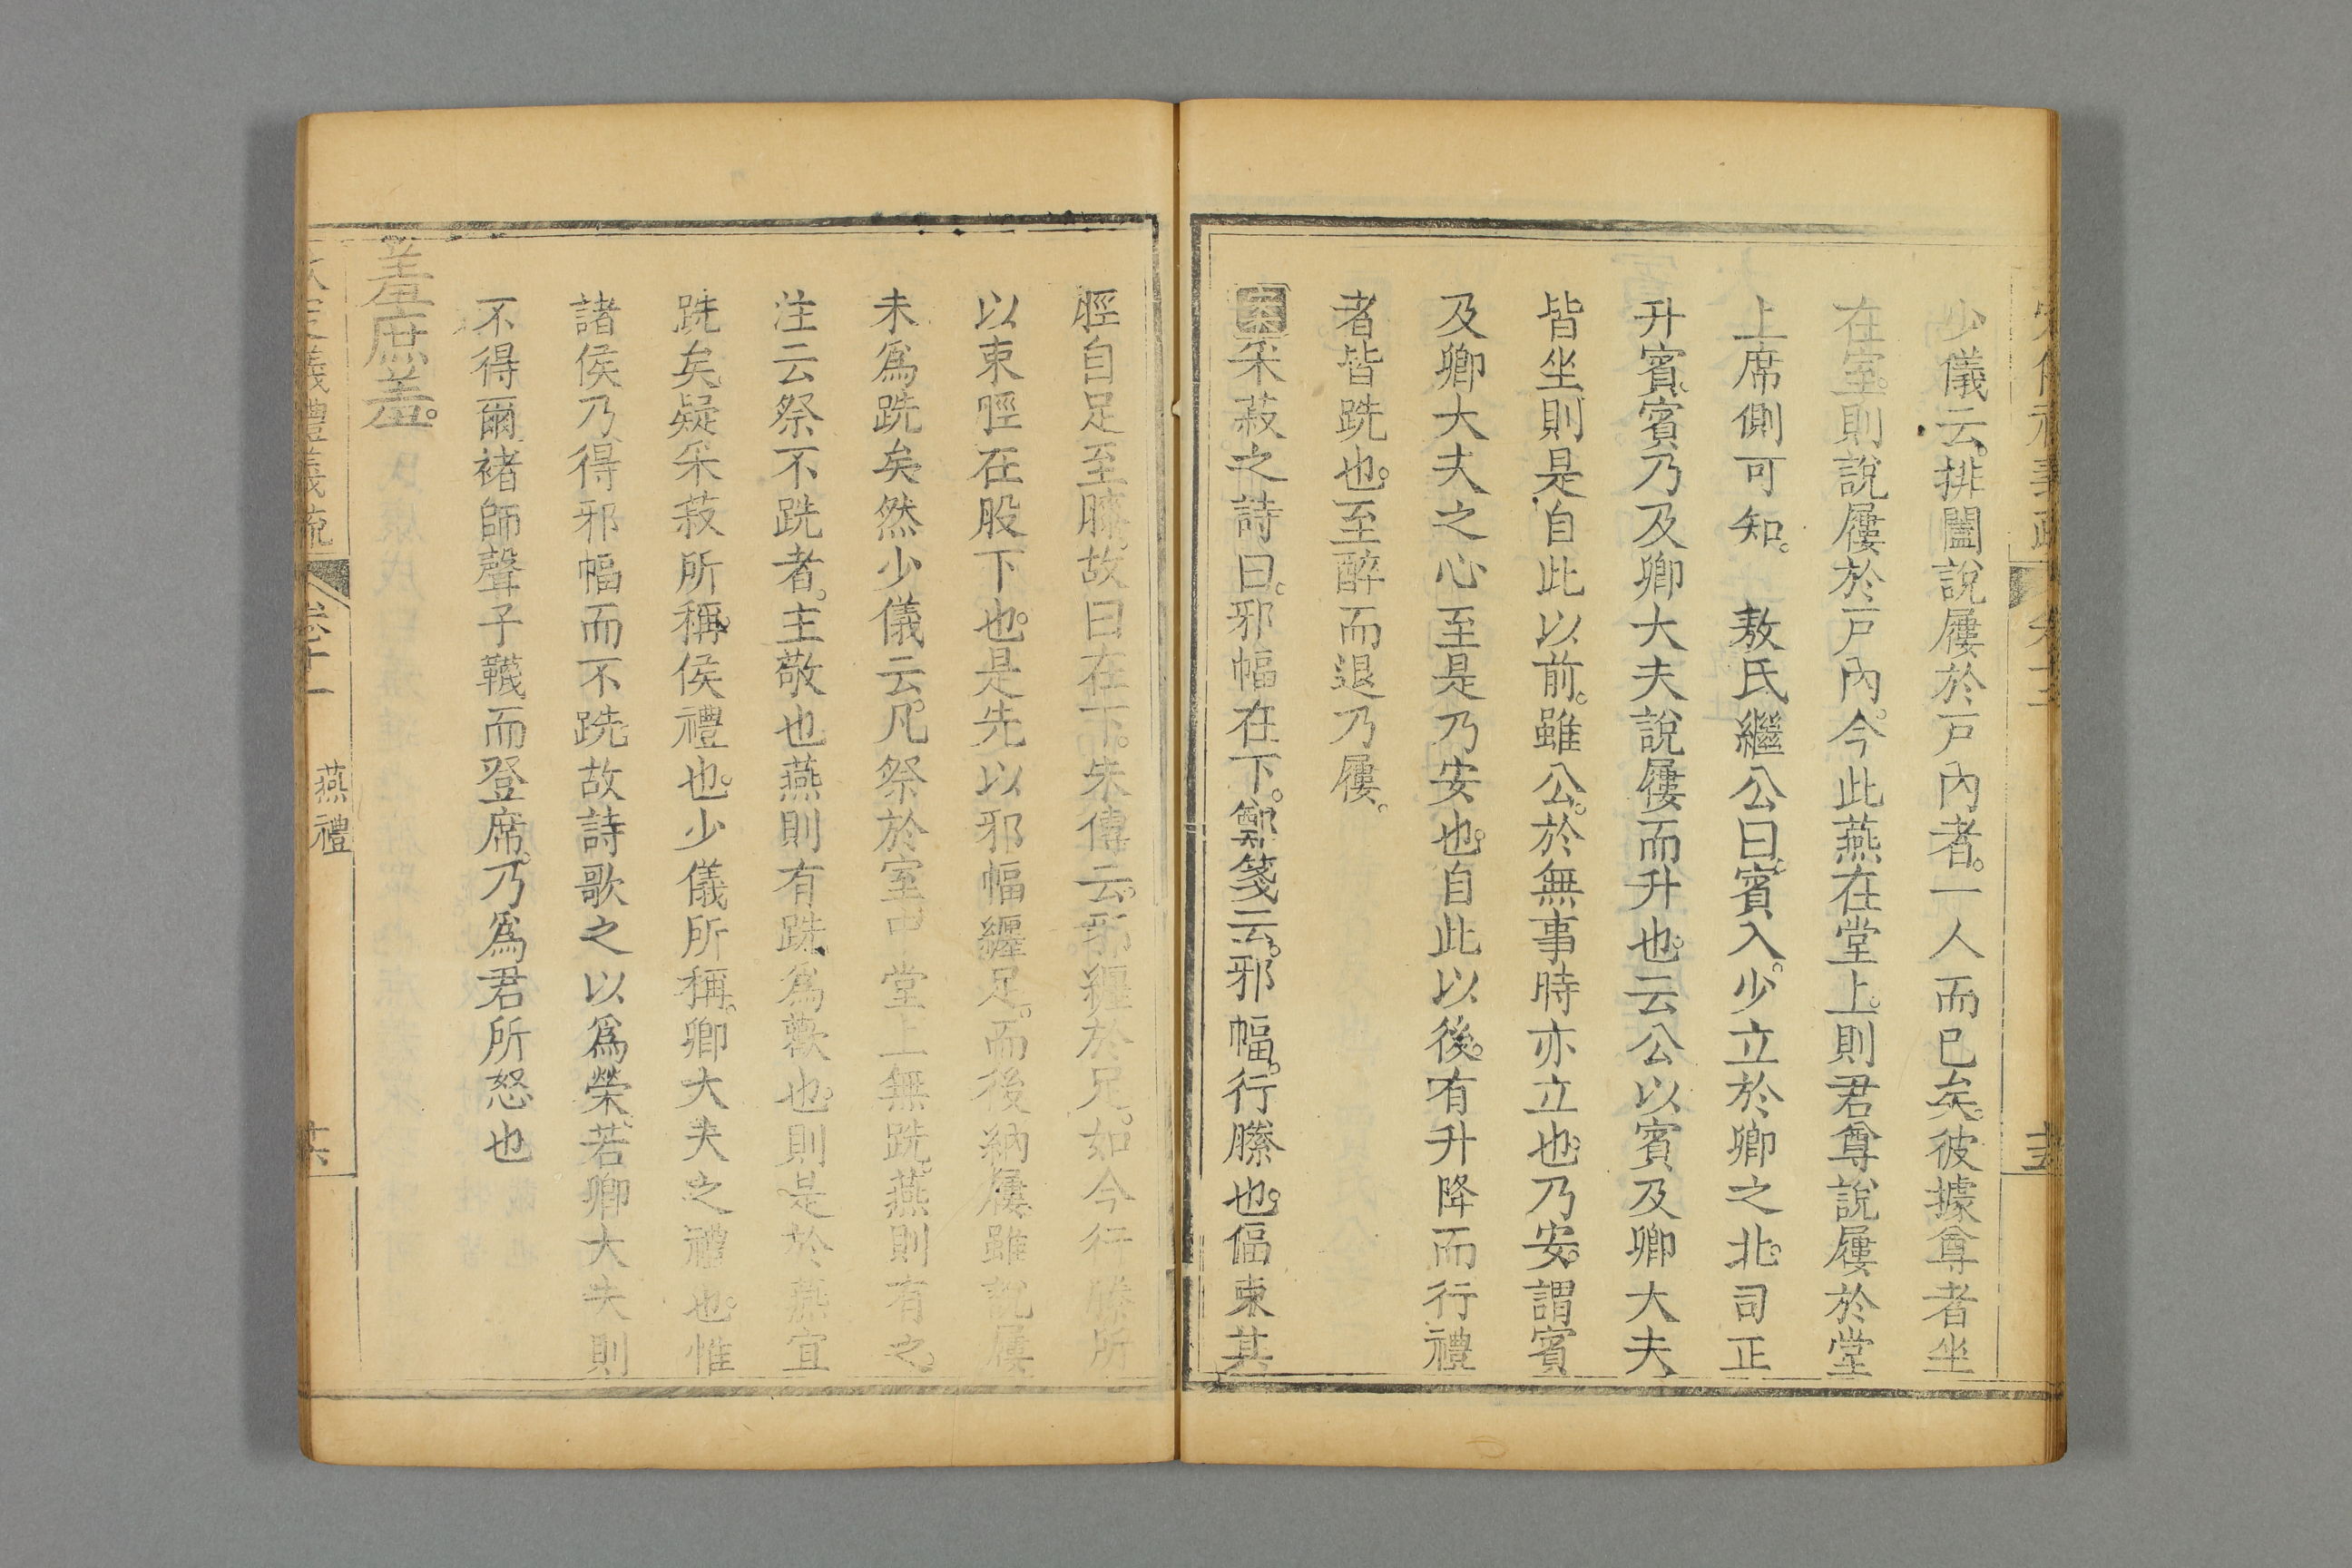 少儀云。排闔說屨於戶內者。一人而已矣。彼據尊者坐
在室。則說屨於戶內。今此燕在堂上。則君尊說屨於堂
上席側可知。敖氏繼公曰。賓入。少立於卿之北。司正
升賓。賓乃及卿大夫說屨而升也。云公以賓及卿大夫
皆坐則是自此以前。雖公。於無事時亦立也。乃安。謂賓
及卿大夫之心至是乃安也。自此以後。有升降而行禮
者皆跣也。至醉而退乃屨。
案采菽之詩曰。邪幅在下。鄭箋云。邪幅。行縢也。偪束其
脛自足至膝。故曰在下。朱傳云。邪纏於足。如今行縢所
以束脛在股下也。是先以邪幅纏足。而後納屨。雖說屨
未爲跣矣。然少儀云。凡祭於室中堂上無跣。燕則有之。
注云祭不跣者。主敬也燕則有跣。爲歡也。則是於燕宜
跣矣。疑采菽所稱。侯禮也。少儀所稱。卿大夫之禮也。惟
諸侯乃得邪幅而不跣。故詩歌之以爲榮。若卿大夫則
不得爾。褚師聲子韤而登席。乃爲君所怒也
羞庶羞。
欽定儀禮義疏 卷十一 燕禮